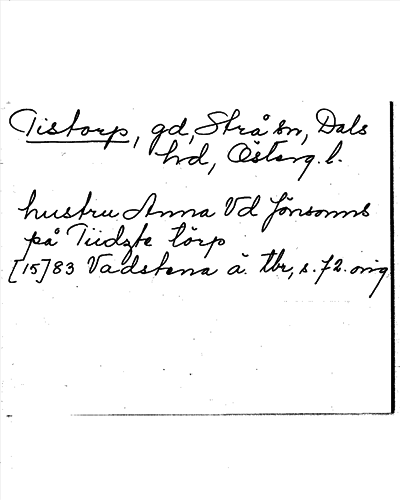 Tistorp, gd, Strå sn, Dals
hd, Österg. l.
hustru Anna Vd Jönsonns
på Tiidzte törp
[15]83 Vadstena ä. tbr, s. 72. orig